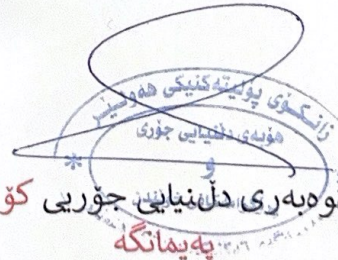 زانکۆی پولیتەکنیکی هەولێر
هۆبەی دڵنیایی جۆری
و
وەبەری دڵنیایی جۆریی کۆ
پەیمانگە